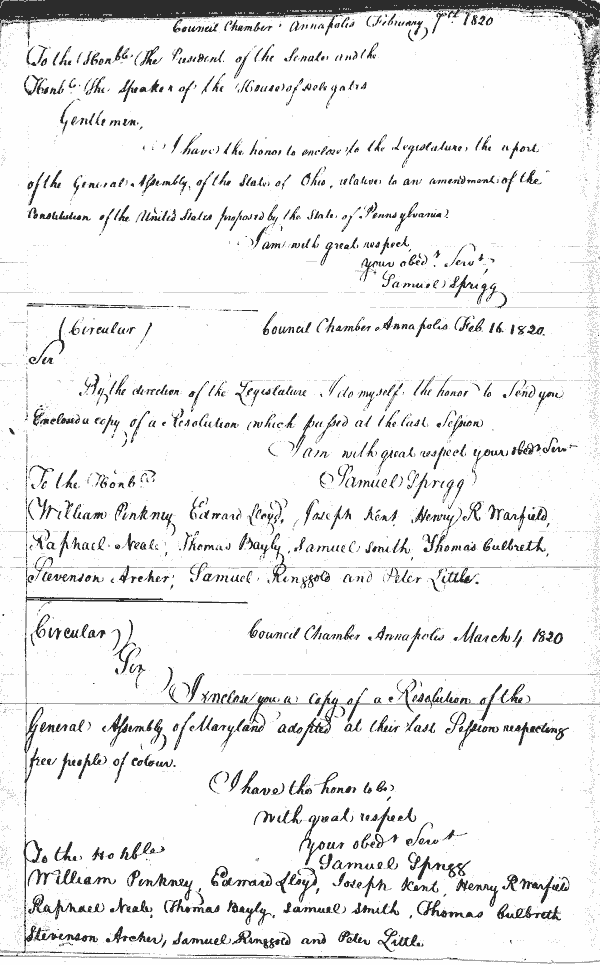 Council Chamber Annapolis February 7th 1820
To the Honble The President of the Senate and the
Honble The Speaker of the House of Delegates
Gentlemen,
I have the honor to enclose to the Legislature, the report
of the General Assembly, of the State of Ohio, relative to an amendment of the
Constitution of the United States proposed by the State of Pennsylvania.
I am with great respect,
your obedt. Servt.
Samuel Sprigg
(Circular) Council Chamber Annapolis Feb. 16. 1820.
Sir
By the direction of the Legislature I do myself the honor to Send you
Enclosed a copy of a Resolution which passed at the last Session
I am with great respect your obedt Servt
To the Honble. Samuel Sprigg
William Pinkney Edward Lloyd, Joseph Kent, Henry R Warfield,
Raphael Neale, Thomas Bayly, Samuel Smith, Thomas Culbreth,
Stevenson Archer, Samuel Ringgold and Peter Little.
(Circular) Council Chamber Annapolis March 4 1820
Sir
I inclose you a copy of a Resolution of the
General Assembly of Maryland adopted at their last Session respecting
free people of colour.
I have the honor to be,
with great respect
your obedt Servt
To the Honble Samuel Sprigg
William Pinkney, Edward Lloyd, Joseph Kent, Henry R Warfield
Raphael Neale, Thomas Bayly, Samuel Smith, Thomas Culbreth
Stevenson Archer, Samuel Ringgold and Peter Little